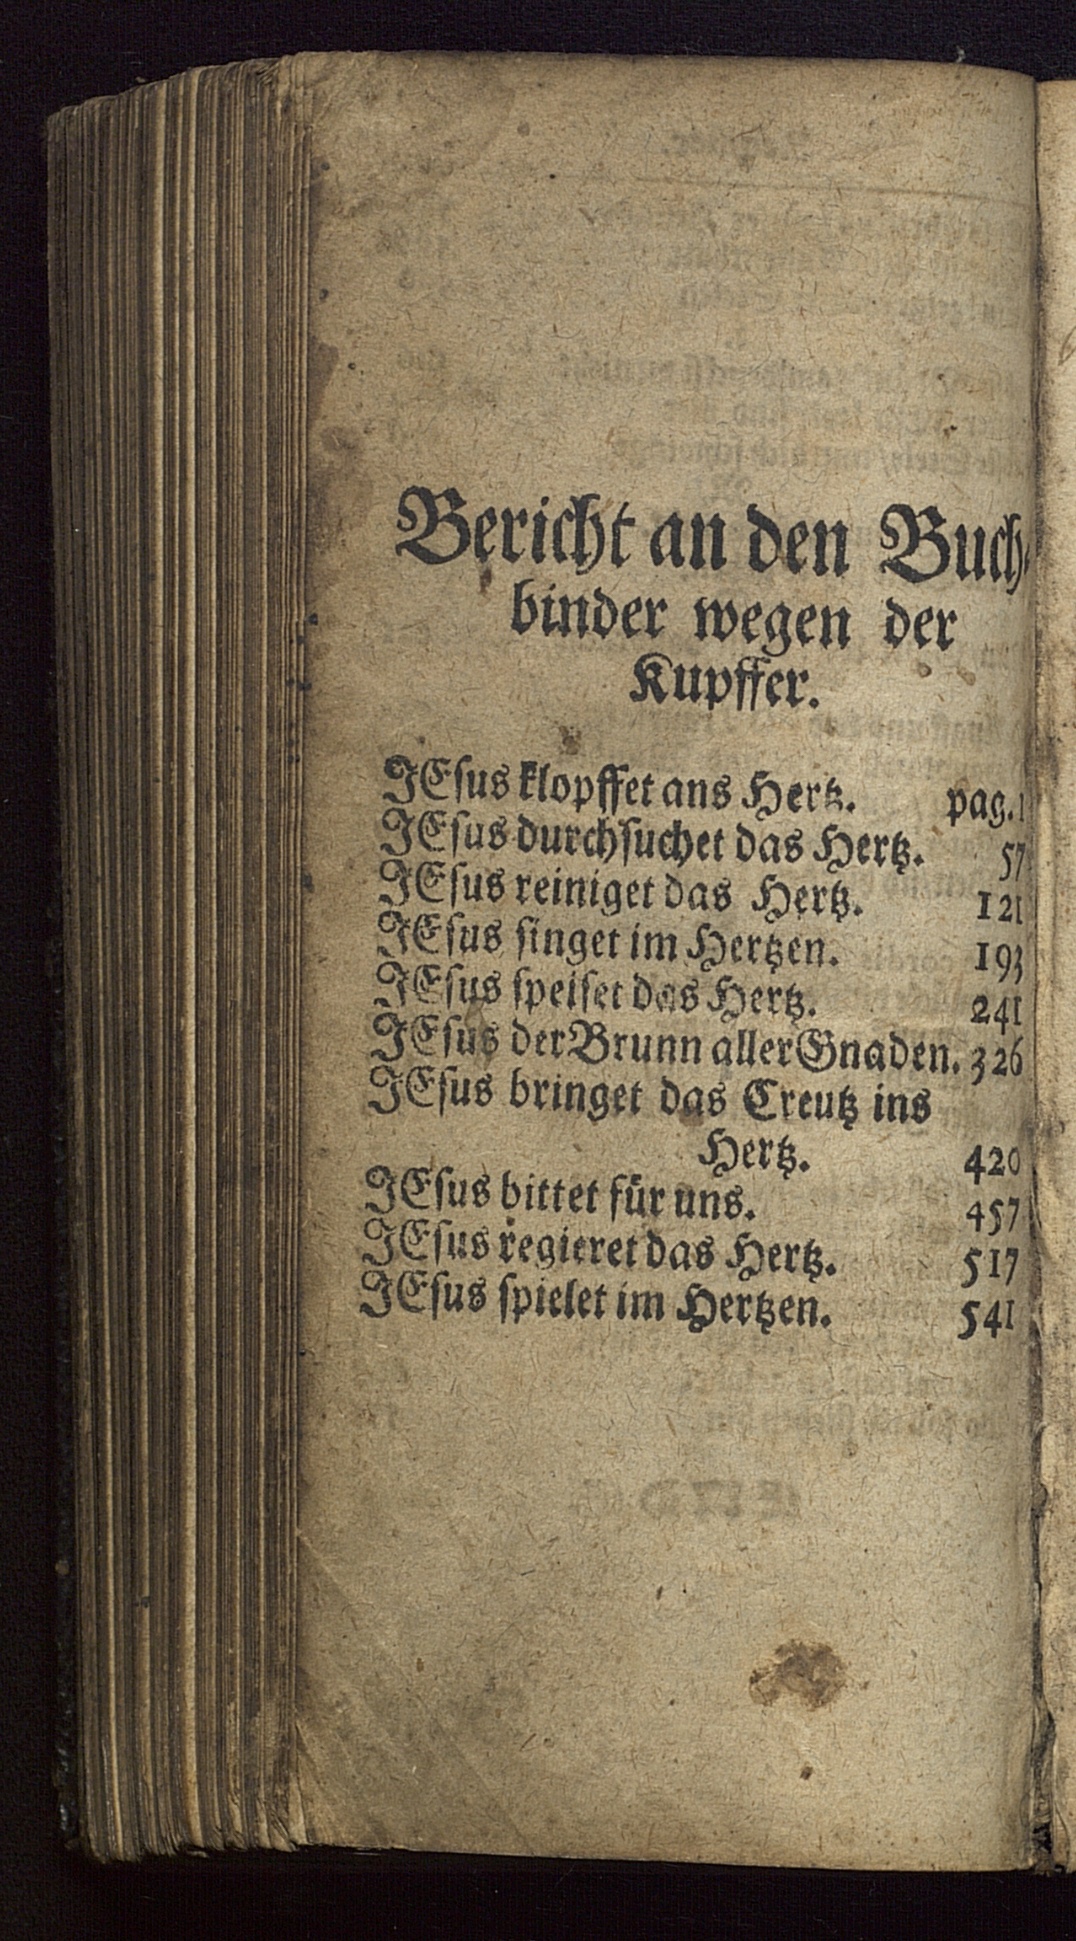 Bericht an den Buch-
binder wegen der
Kupffer.
JEſus klopffet ans Hertz. pag. 1
JEſus durchſuchet das Hertz. 57
JEſus reiniget das Hertz. 121
JEſus ſinget im Hertzen. 193
JEſus ſpeiſet das Hertz. 241
JEſus der Brunn aller Gnaden. 326
JEſus bringet das Creutz ins
Hertz. 420
JEſus bittet für uns. 457
JEſus regieret das Hertz. 517
JEſus ſpielet im Hertzen. 541